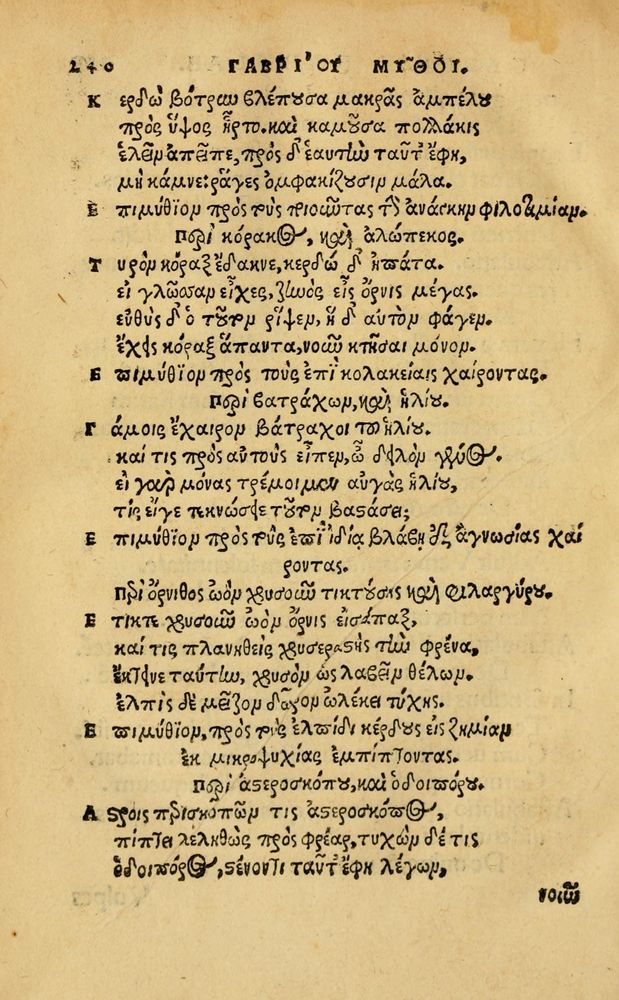 240 ΓΑΒΡΙΟΥ ΜΥΘΟΙ.
Κερδὼ βότρυν βλέπουσα μακρᾶς ἀμπέλου
πρὸς ὕψος ἦρτο. καὶ καμοῦσα πολλάκις
ἑλεῖν ἀπεῖπε, πρὸς δ' ἑαυτὴν ταῦτ' ἔφη,
μὴ κάμνε: ῥᾶγες ὀμφακίζουσιν μάλα.
Ἐπιμύθϊον πρὸς τοὺς ποιοῦντας τὴν ἀνάγκην φιλοτιμίαν.
Περὶ κόρακος, καὶ ἀλώπεκος.
Τυρὸν κόραξ ἔδακνε, κερδὼ δ' ἠπάτα.
εἰ γλῶσσαν εἶχες, ζηνὸς εἶς ὄρνις μέγας.
εὐθὺς δ' ὁ τοῦτον ῥίψεν, ἡ δ' αὐτὸν φάγεν.
ἔχεις κόραξ ἅπαντα, νοῦν κτῆσαι μόνον.
Ἐπιμύθϊον πρὸς τοὺς ἐπὶ κολακείαις χαίροντας.
Περὶ βατράχων, καὶ ἡλίου.
Γάμοις ἔχαιρον βάτραχοι τῶ ἡλίου.
καί τις πρὸς αὐτοὺς εἶπεν, ὦ δειλὸν γένος.
εἰ γὰρ μόνας τρέμοιμεν αὐγὰς ἡλίου,
τίς εἴγε τεκνώσειε τοῦτον βαστάσει;
Ἐπιμύθϊον πρὸς τοὺς ἐπὶ ἰδίᾳ βλάβῃ ἐξ ἀγνωσίας χαί
ροντας.
Περὶ ὄρνιθος ὠὸν χρυσοῦν τικτούσης καὶ φιλαργύρου.
Ἔτικτε χρυσοῦν ὠὸν ὄρνις εἰσάπαξ,
καί τις πλανηθεὶς χρυσεραστὴς τὴν φρένα,
ἔκτεινε ταύτην, χρυσὸν ὡς λαβεῖν θέλων.
ἐλπὶς δὲ μεῖζον δῶρον ὠλέκει τύχης.
Ἐπιμύθϊον, πρὸς τοὺς ἐλπίδι κέρδους εἰς ζημίαν
ἐκ μικροψυχίας ἐμπίπτοντας.
Περὶ ἀστεροσκόπου, καὶ ὁδοιπόρου.
Ἄστροις περισκοπῶν τις ἀστεροσκόπος,
πίπτει λεληθὼς πρὸς φρέαρ, τυχὼν δέ τις
ὁδοιπόρος, στένοντι ταῦτ' ἔφη λέγων,
τοιοῦ